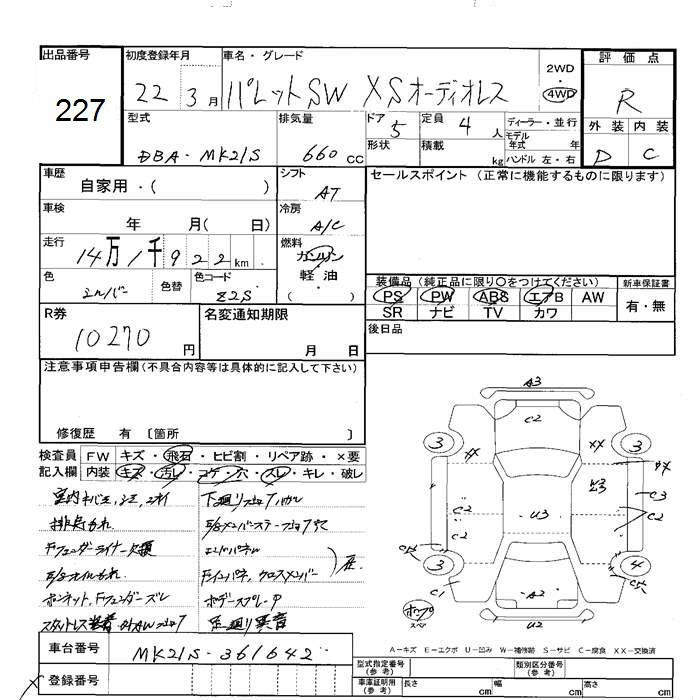 出品番号
227
初度登録年月
22 3月
車名・グレード
パレットSW XSオーディオレス
2WD
・
4WD
評価点
R
外装 内装
D C
型式
DBA-MK21S
排気量
660 CC
ドア 5
形状
定員 4 人
積載 kg
ディーラー・並行
モデル
年式 年
ハンドル 左・右
車歴
自家用・( )
シフト
AT
セールスポイント(正常に機能するものに限ります)
車検
年 月( 日)
冷房
A/C
走行
14万1千922km
燃料
ガソリン
・
軽油
( )
色
シルバー
色替
色コード
Z2S
装備品(純正品に限り○をつけてください)
PS PW ABS エアB AW
SR ナビ TV カワ
新車保証書
有・無
R券
10270円
名変通知期限
月 日
後日品
注意事項申告欄(不具合内容等は具体的に記入して下さい)
修復歴 有 〔箇所 〕
検査員
記入欄
FW キズ・飛石・ヒビ割・リペア跡・×要
内装 キズ・汚レ・コゲ・穴・スレ・キレ・破レ
下廻リサビ
排気もれ
Fフェンダーライナー欠損
E/Sオイルもれ
エンドパネル
Fインパネ、クロスメンバー
ボンネット、Fフェンダーズレ
ボデースプレー
スタットレス装着
足廻り異音
A3
C2
3
3
XX
XX
XX
U3
C3
C2
C2
C2
U3
C2
3
4
C1
A2
U2
車台番号
MK21S-361642
登録番号
A−キズ E−エクボ U−凹み W−補修跡 S−サビ C−腐食 XX−交換済
型式指定番号
(参考)
類別区分番号
(参考)
車庫証明用
(参考)
長さ cm
幅 cm
高さ cm